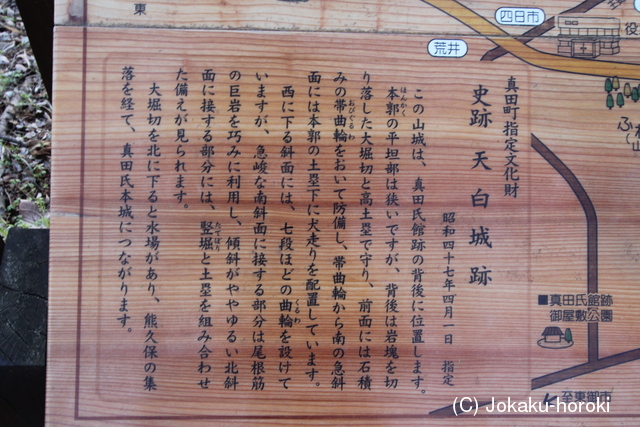 真田町指定文化財
史跡 天白城跡
昭和四十七年四月一日 指定
この山城は、真田氏館跡の背後に位置します。
本郭の平坦部は狭いですが、背後は岩塊を切
ほんかく
り落した大堀切と高土塁で守り、前面には石積
みの帯曲輪をおいて防備し、帯曲輪から南の急斜
おびぐるわ
面には本郭の土塁下に犬走りを配置しています。
西に下る斜面には、七段ほどの曲輪を設けて
くるわ
いますが、急峻な南斜面に接する部分は尾根筋
の巨岩を巧みに利用し、傾斜がややゆるい北斜
面に接する部分には、竪堀と土塁を組み合わせ
たてぼり
た備えが見られます。
大堀切を北に下ると水場があり、熊久保の集
落を経て、真田氏本城につながります。
東
四日市
荒井
役
■真田氏館跡
御屋敷公園
至東御市
(C) Jokaku-horoki